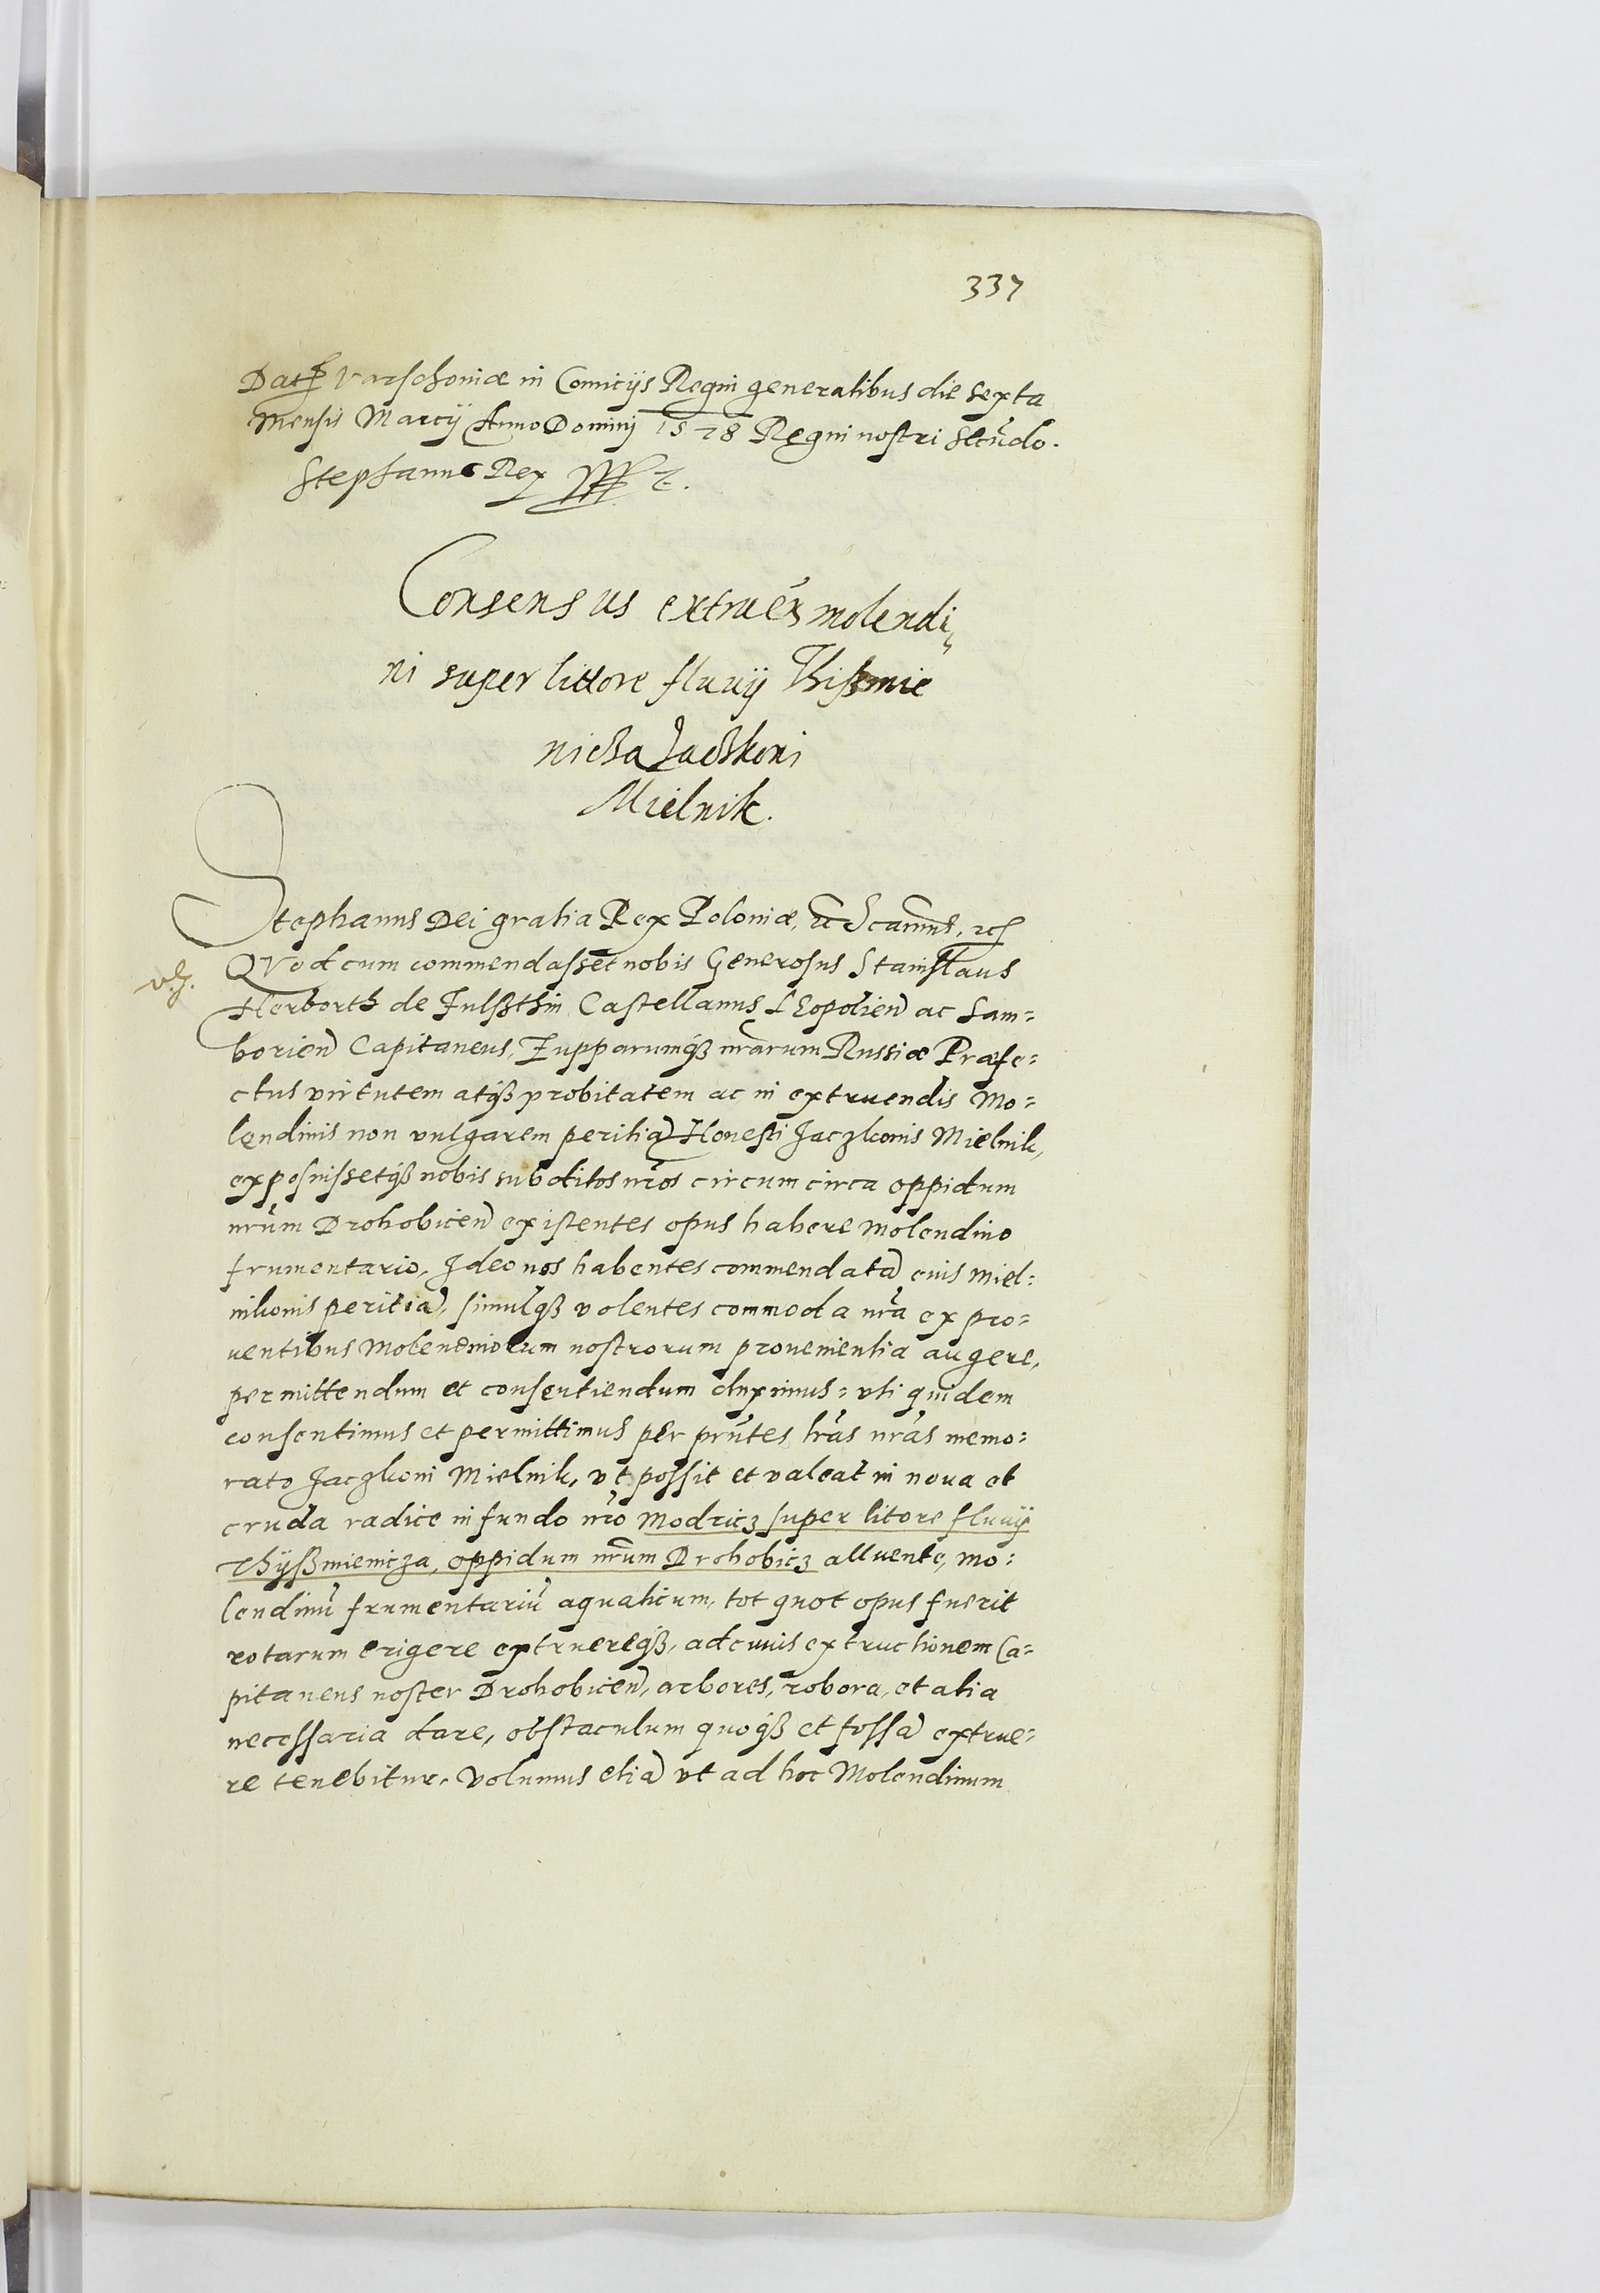 337
Dat Varschoviæ in Comitijs Regni generalibus die sexta
Mensis Marcij Anno Domini 1578 Regni nostri secūdo.
Stephanus Rex
Consensus extruēn molendi„
ni super littore fluuij Thißmie
nicza Jaczkoni
Mielnik.
Stephanus Dei gratia Rex Poloniæ,
QVod cum commendasset nobis Generosus Stanislaus
Herborth de Fulsthin Castellanus Leopolien̄ ac Sam=
borien̄ Capitaneus, Zupparumqȝ nr̄arum Russiæ Præfe=
ctus virtutem atqȝ probitatem ac in extruendis Mo=
lendinis non vulgarem peritiā Honesti Jaczkonis Mielnik,
exposuissetqȝ nobis subditos nr̄os circum circa oppidum
nr̄um Drohobicen̄ existentes opus habere molendino
frumentario, Ideo nos habentes commendatā euis Miel=
nikonis peritiā, simulqȝ volentes commoda nr̄a ex pro=
uentibus Molendinorum nostrorum prouenientia augere,
permittendum et consentiendum duximus: vti quidem
consentimus et permittimus per prn̄tes lr̄as nr̄as memo=
rato Jaczkoni Mielnik, vt possit et valeat in noua et
cruda radice in fundo nr̄o Modricz super litore fluuij
Thyßmienicza, oppidum nr̄um Drohobicz alluente, mo=
lendinū frumentariū aquaticum, tot quot opus fuerit
rotarum erigere extruereqȝ, ad cuuis extructionem Ca=
pitaneus noster Drohobicen̄, arbores, robora, et alia
necessaria dare, obstaculum quoqȝ et fossā extrue=
re tenebitur. Volumus etiā vt ad hoc Molendinum